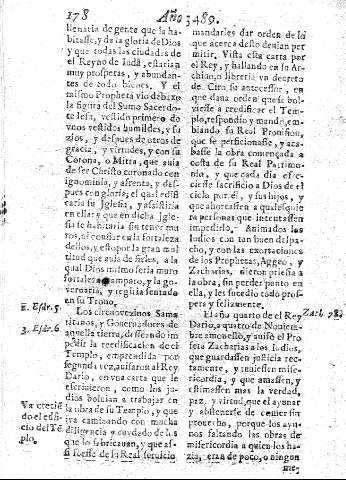 178
Año 3489.
llenaria de gente que la ha-
bitasse, y de la gloria de Dios
y que todas las ciudades de
el Reyno de Iudà, estarian
muy prosperas, y abundan-
tes de todo bienes. Y el
mismo Propheta vio debaxo
la figura del Sumo Sacerdo-
te Iesu, vestido primero de
vnos vestidos humildes, y su
zios, y despues de otros de
gracia, y virtudes, y con su
Corona, o Mitra, que auia
de ser Christo coronado con
ignominia, y afrenta, y des-
pues con gloria, el qual edifi
caria su Iglesia, y assistiria
en ella: y que en dicha Igle-
sia se habitaria sin tener mu
ros, ni confiar en la fortaleza
dellos, y esto por la gran mul
titud que auia de fieles, a la
qual Dios mismo seria muro
fortaleza amparo, y la go-
vernaria, y regiria sentado
en su Trono.
Los circonvezinos Sama
ritanos, y Governadores de
aquella tierra, desseando im
pedir la reedificacion de el
Templo, emprendida por
segunda vez, auisaron al Rey
Dario, en vna carta que le
escriuieron, como los iu-
dios boluian a trabajar en
la obra de su Templo, y que
iva caminando con mucha
diligencia y cuydado de los
que lo fabricauan, y que as-
si fuesse de su Real servicio
2. Esdr. 5.
3. Esdr. 6
Va crecié
do el edifi
cio del Té
plo.
mandarles dar orden de lo
que acerca desto deuian per
mitir. Vista esta carta por
el Rey, y hallando en su Ar
chiuo, o libreria va decreto
de Ciro su antecessor, en
que daua orden que se bol-
uiesse a reedificar el Tem-
plo, respondio y mandò, em-
biando su Real Prouision,
que se perficionasse, y aca-
basse la obra començada a
costa de su Real Patrimo-
nio, y que cada dia ofre-
ciesse sacrificio a Dios de el
cielo por èl, y sus hijos, y
que ahorcassen a qualesquie
ra personas que intentassen
impedirlo. Animados los
Iudios con tan buen despa-
cho, y con las exortaciones
de los Prophetas, Aggeo, y
Zacharias, dieron priessa a
la obra, sin perder punto en
ella, y les sucedio todo pros-
pera y felizmente.
El año quarto de el Rey
Dario, a quatro de Nouiem-
bre amonestò, y auisò el Pro
feta Zacharias a los Iudios,
que guardassen justicia rec-
tamente, y tuuiessen mise-
ricordia, y que amassen, y
estimassen mas la verdad,
paz, y virtud, que el ayunar
y abstenerse de comer sin
prouecho, porque los ayu-
nos faltando las obras de
misericordia a quien los ha-
zia, eran de poco, o ningun
Zach. 7. 8.